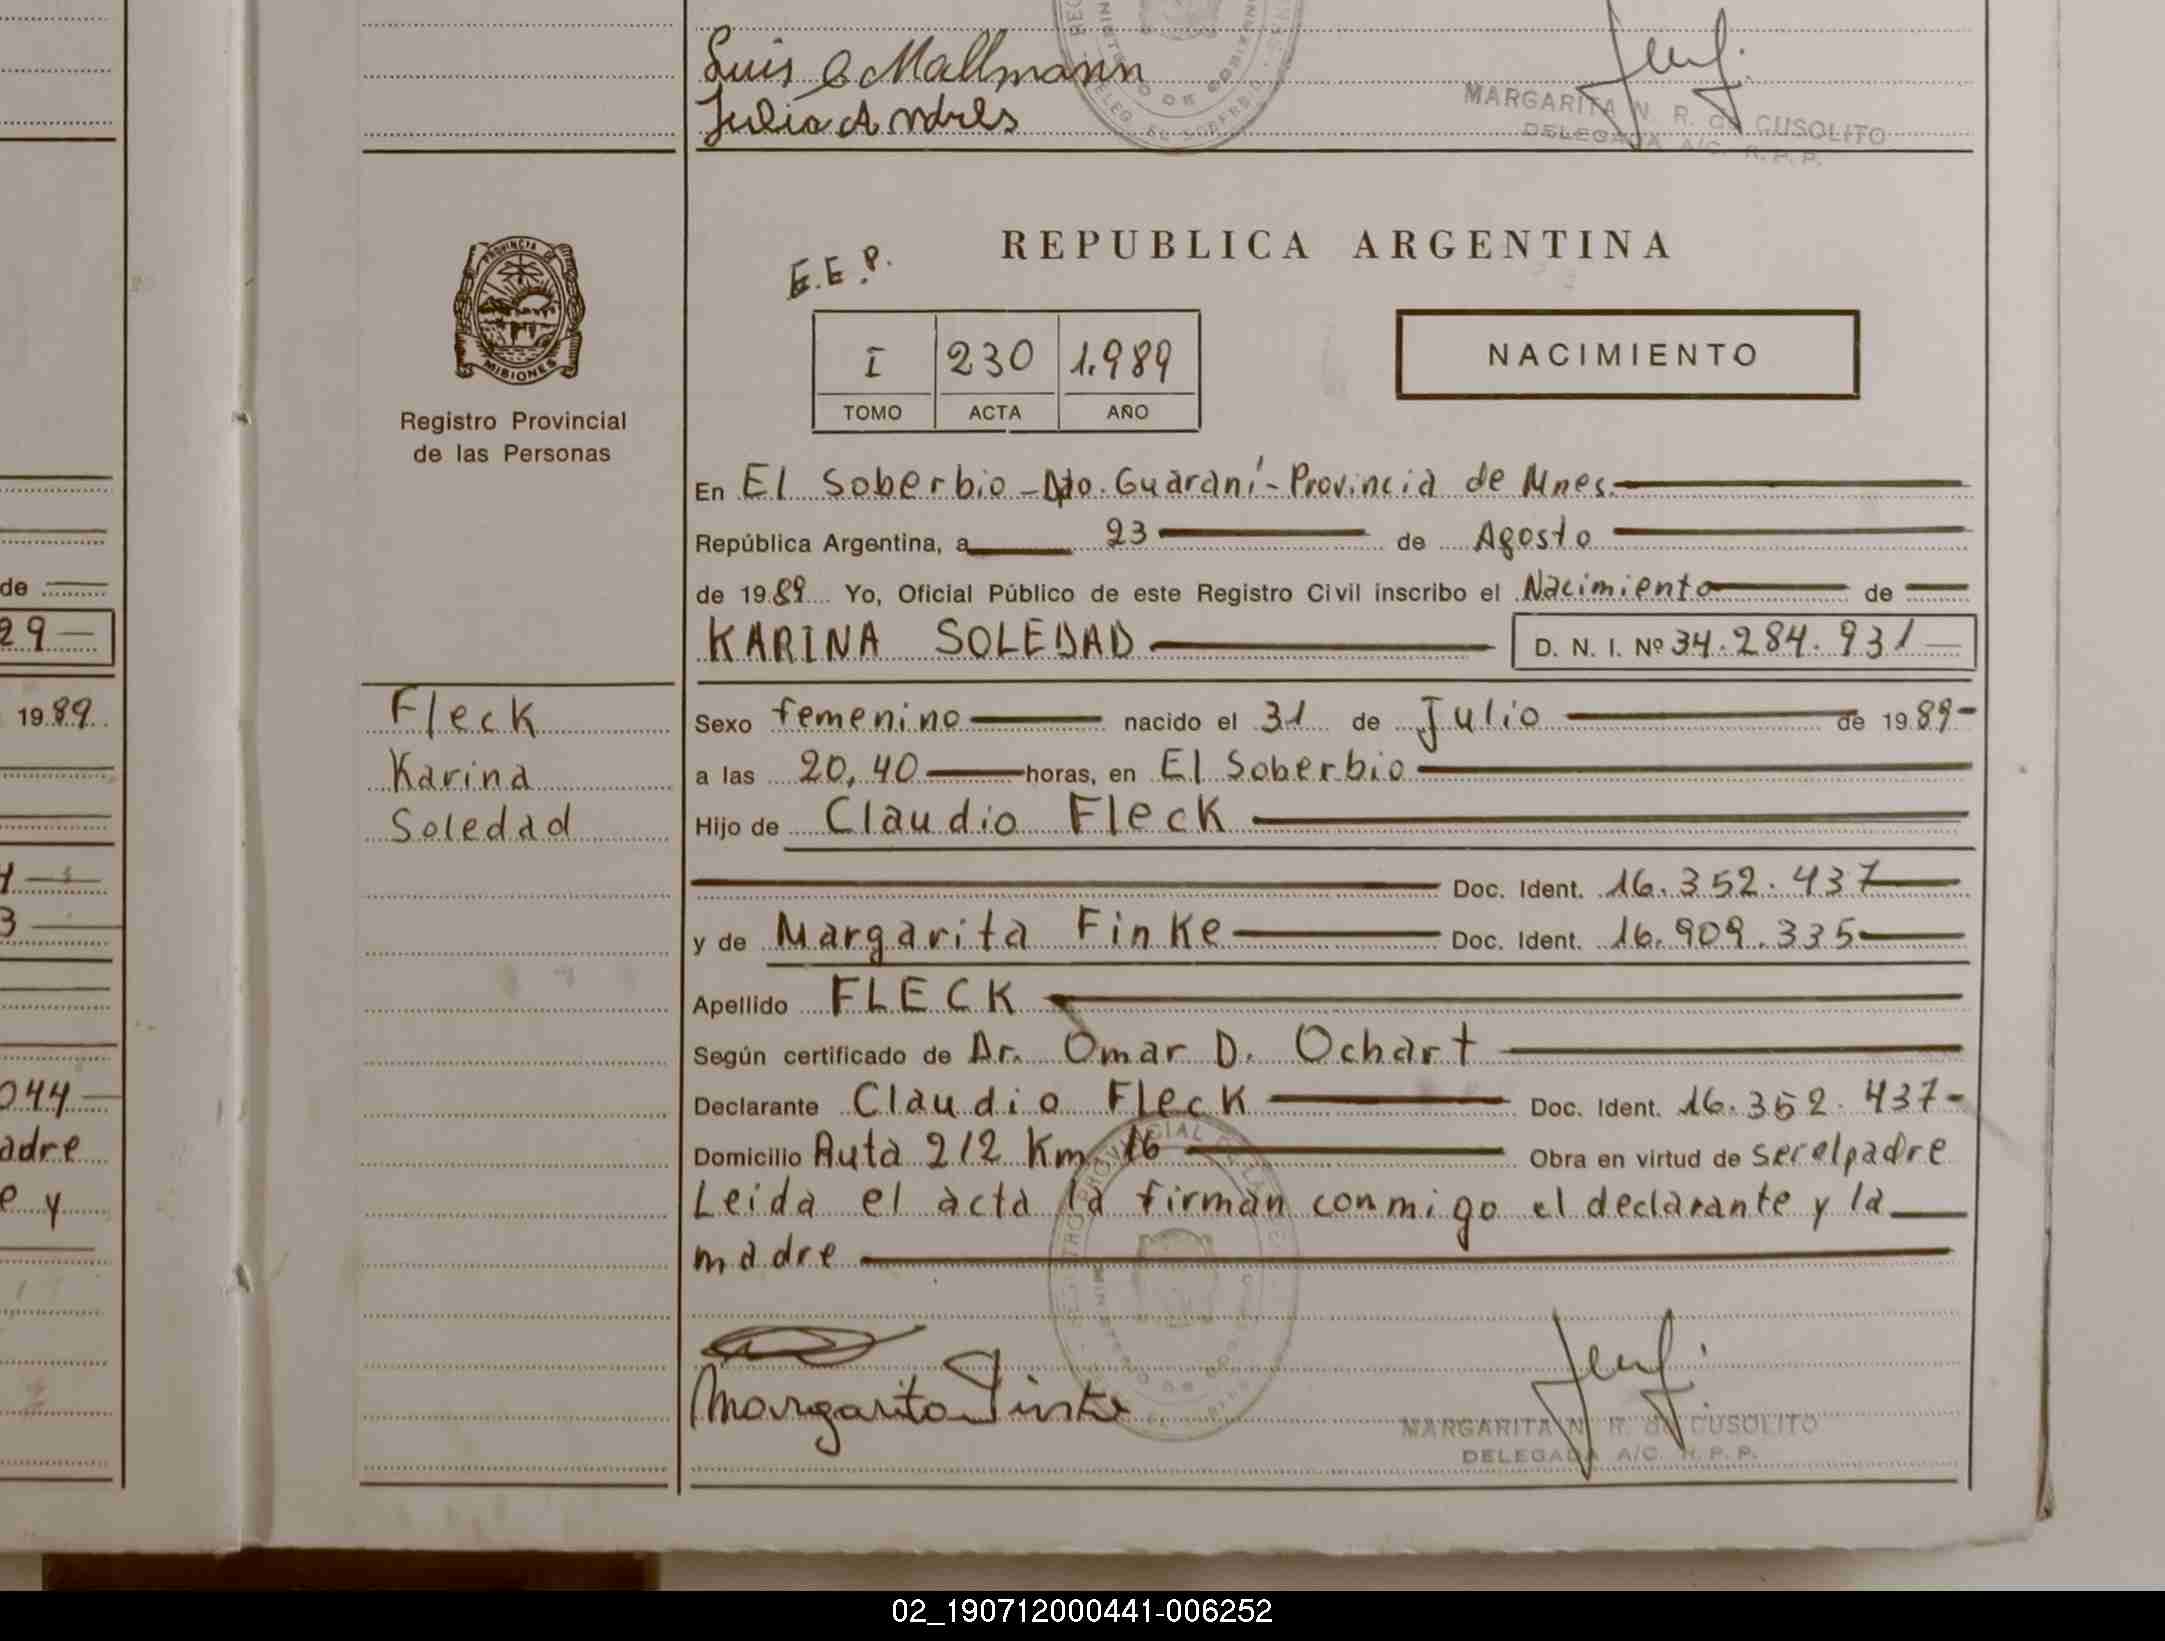 Luis e Mallmann
Julia Andres
MARGARITA N. R. de CUSOLITO
DELEGADA A/C. R. P. P.
PROVINCIA DE
MISIONES
Registro Provincial
de las Personas
E.E.P.
REPUBLICA ARGENTINA
I 230 1.989
TOMO ACTA AÑO
NACIMIENTO
En El Soberbio - Dpto. Guaraní - Provincia de Mnes.
República Argentina, a 23 de Agosto
de 1989 Yo, Oficial Público de este Registro Civil inscribo el Nacimiento de
KARINA SOLEDAD D. N. I. Nº 34.284.931
Fleck
Karina
Soledad
Sexo femenino nacido el 31 de Julio de 1989
a las 20,40 horas, en El Soberbio
Hijo de Claudio Fleck
Doc. Ident. 16.352.437
y de Margarita Finke Doc. Ident. 16.909.335
Apellido FLECK
Según certificado de Dr. Omar D. Ochart
Declarante Claudio Fleck Doc. Ident. 16.352.437
Domicilio Ruta 212 Km 16 Obra en virtud de ser el padre
Leida el acta la firman conmigo el declarante y la
madre
Margarita Finke
MARGARITA N. R. de CUSOLITO
DELEGADA A/C. R. P. P.
de
29
1989
3
044
adre
e y
02_190712000441-006252